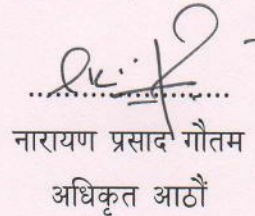 नारायण प्रसाद गौतम
अधिकृत आठौं